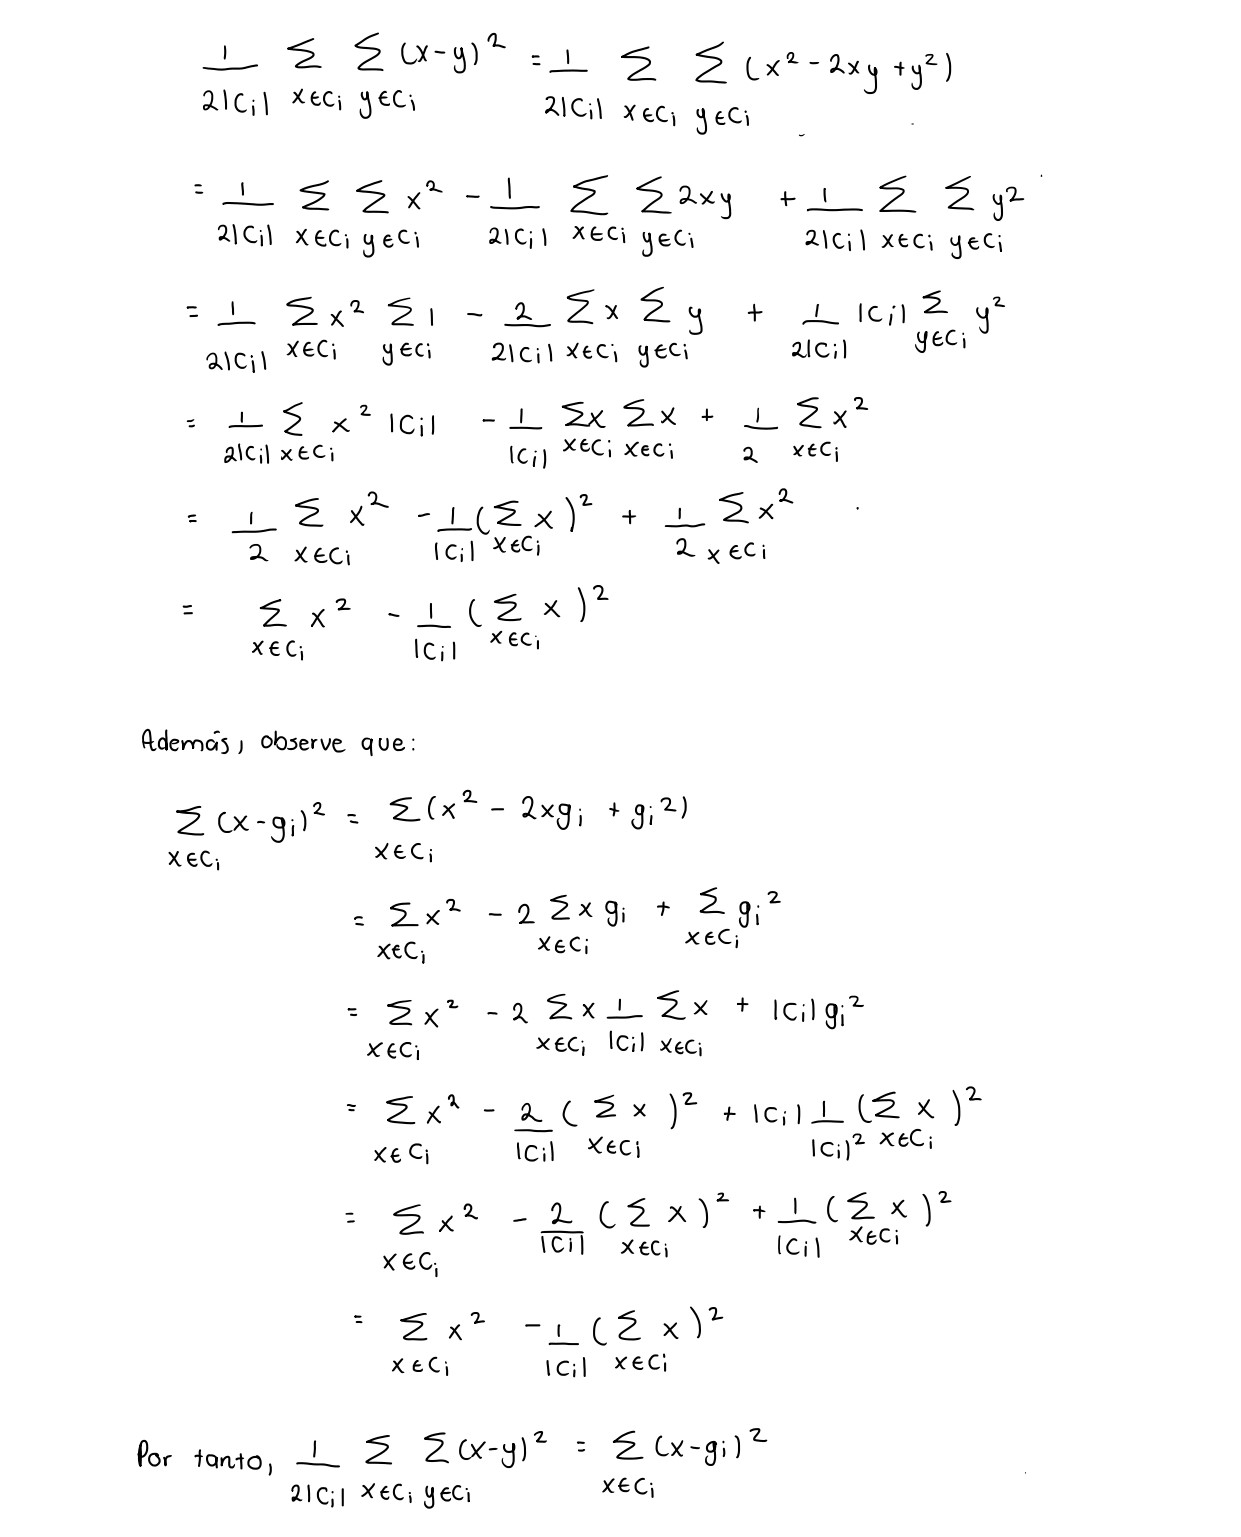 1/(2|Ci|) Σ_{x∈Ci} Σ_{y∈Ci} (x-y)² = 1/(2|Ci|) Σ_{x∈Ci} Σ_{y∈Ci} (x² - 2xy + y²)
= 1/(2|Ci|) Σ_{x∈Ci} Σ_{y∈Ci} x² - 1/(2|Ci|) Σ_{x∈Ci} Σ_{y∈Ci} 2xy + 1/(2|Ci|) Σ_{x∈Ci} Σ_{y∈Ci} y²
= 1/(2|Ci|) Σ_{x∈Ci} x² Σ_{y∈Ci} 1 - 2/(2|Ci|) Σ_{x∈Ci} x Σ_{y∈Ci} y + 1/(2|Ci|) |Ci| Σ_{y∈Ci} y²
= 1/(2|Ci|) Σ_{x∈Ci} x² |Ci| - 1/|Ci| Σ_{x∈Ci} x Σ_{x∈Ci} x + 1/2 Σ_{x∈Ci} x²
= 1/2 Σ_{x∈Ci} x² - 1/|Ci| (Σ_{x∈Ci} x)² + 1/2 Σ_{x∈Ci} x²
= Σ_{x∈Ci} x² - 1/|Ci| (Σ_{x∈Ci} x)²
Además, observe que:
Σ_{x∈Ci} (x-gi)² = Σ_{x∈Ci} (x² - 2xgi + gi²)
= Σ_{x∈Ci} x² - 2 Σ_{x∈Ci} x gi + Σ_{x∈Ci} gi²
= Σ_{x∈Ci} x² - 2 Σ_{x∈Ci} x 1/|Ci| Σ_{x∈Ci} x + |Ci| gi²
= Σ_{x∈Ci} x² - 2/|Ci| (Σ_{x∈Ci} x)² + |Ci| 1/|Ci|² (Σ_{x∈Ci} x)²
= Σ_{x∈Ci} x² - 2/|Ci| (Σ_{x∈Ci} x)² + 1/|Ci| (Σ_{x∈Ci} x)²
= Σ_{x∈Ci} x² - 1/|Ci| (Σ_{x∈Ci} x)²
Por tanto, 1/(2|Ci|) Σ_{x∈Ci} Σ_{y∈Ci} (x-y)² = Σ_{x∈Ci} (x-gi)²